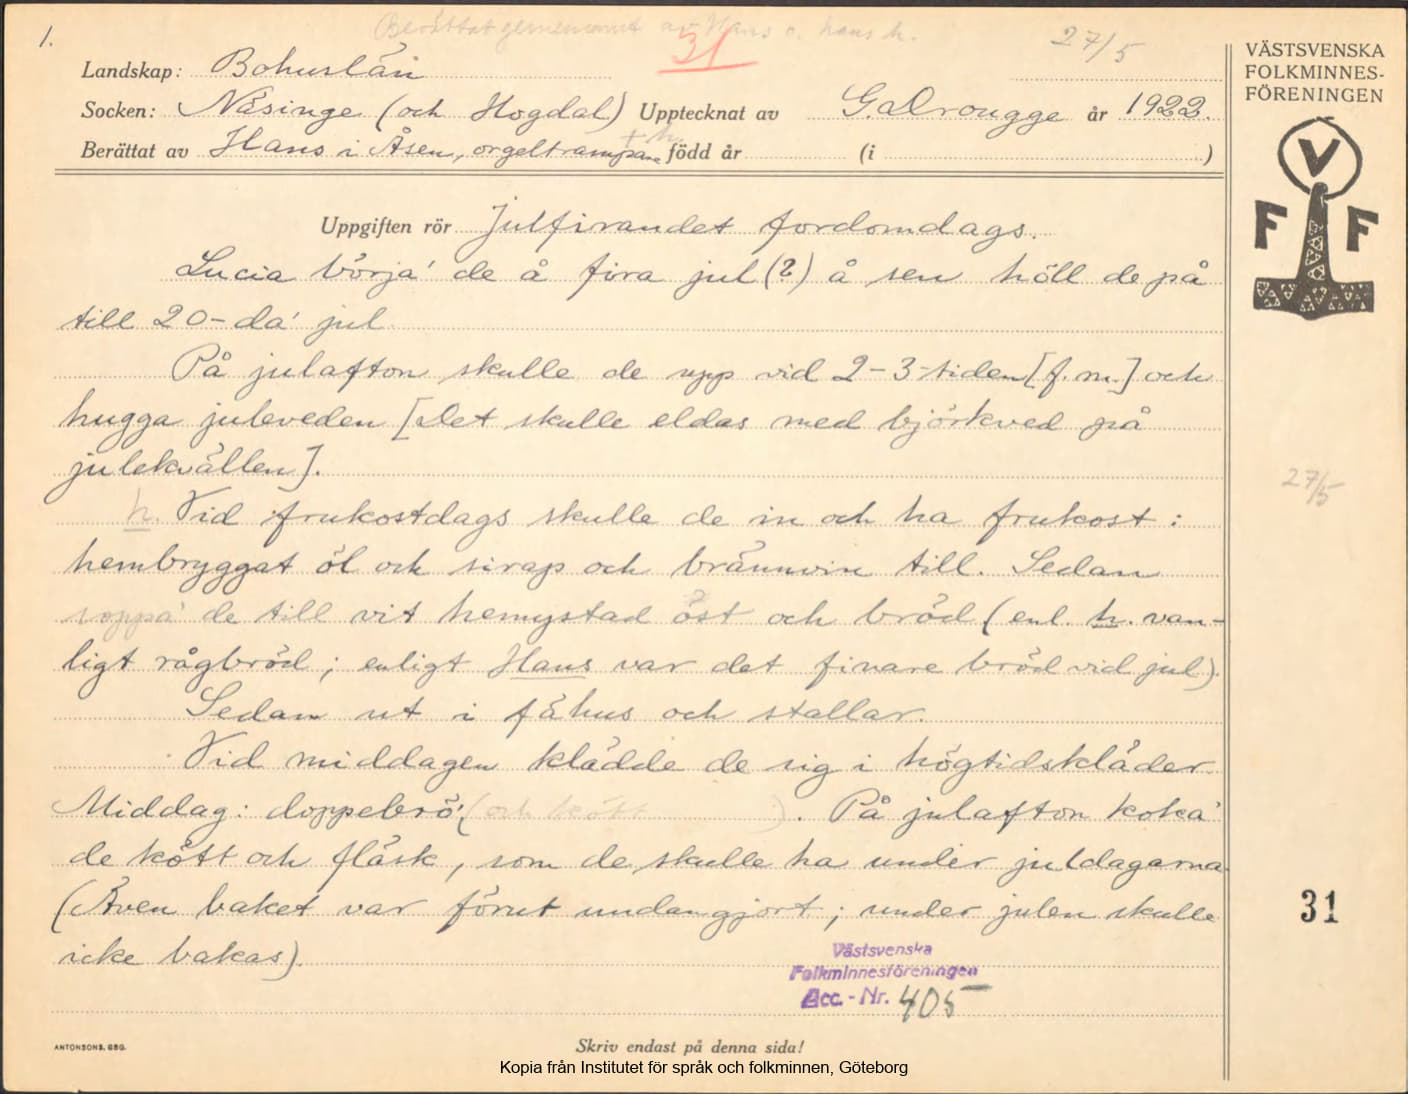 1.
Berättat gemensamt av Hans o. hans h.
31
27/5
Landskap: Bohuslän
Socken: Näsinge (och Hogdal) Upptecknat av G. Drougge år 1922.
Berättat av Hans i Åsen, orgeltrampare + h. född år (i )
VÄSTSVENSKA
FOLKMINNES-
FÖRENINGEN
V
F F
Uppgiften rör Julfirandet fordomdags.
Lucia börja' de å fira jul (?) å sen höll de på
till 20-da' jul
På julafton skulle de upp vid 2-3-tiden [f.m.] och
hugga juleveden [Det skulle eldas med björkved på
julekvällen].
27/5
h. Vid frukostdags skulle de in och ha frukost:
hembryggat öl och sirap och brännvin till. Sedan
soppa' de till vit hemystad ost och bröd (enl. h. van-
ligt rågbröd; enligt Hans var det finare bröd vid jul).
Sedan ut i fähus och stallar.
Vid middagen klädde de sig i högtidskläder.
Middag: doppebrö' (och kött ). På julafton koka'
de kött och fläsk, som de skulle ha under juldagarna
(Även baket var förut undangjort; under julen skulle
icke bakas).
31
Västsvenska
Folkminnesföreningen
Acc.-Nr. 405
ANTONSONS, GBG.
Skriv endast på denna sida!
Kopia från Institutet för språk och folkminnen, Göteborg